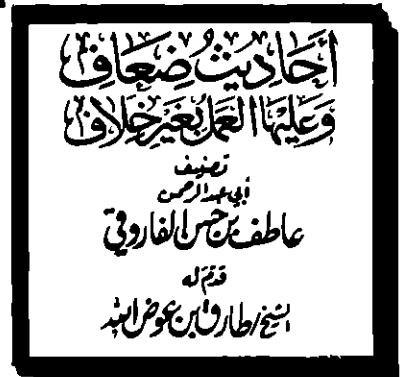 أَحَادِيثُ ضِعَافٌ
وَعَلَيْهَا العَمَلُ بِغَيْرِ خِلَافٍ
تصنيف
أبي عبد الرحمن
عاطف بن حسن الفاروقي
قدم له
الشيخ/طارق بن عوض الله